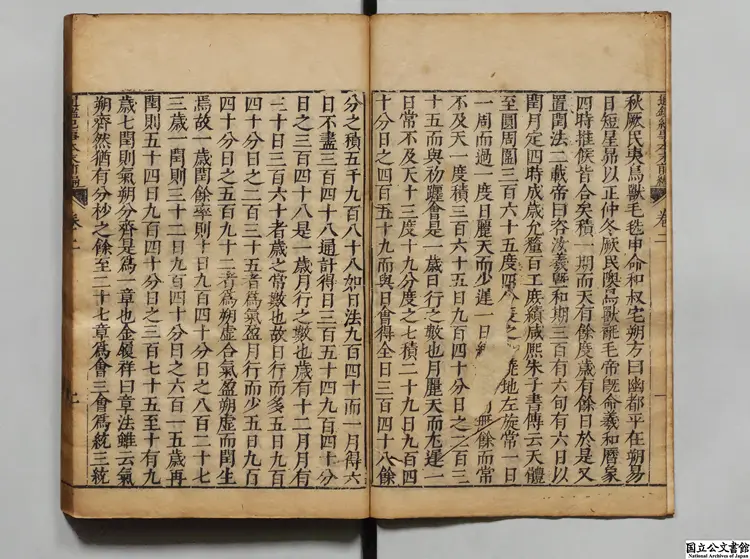 秋厥民夷鳥獸毛毨申命和叔宅朔方曰幽都平在朔易
日短星昴以正仲冬厥民隩鳥獸氄毛帝既命羲和曆象
四時推候皆合矣積一期而天有餘度歲有餘日於是又
置閏法二載帝曰咨汝羲暨和期三百有六旬有六日以
閏月定四時成歲允釐百工庶績咸熙朱子書傳云天體
至圓周圍三百六十五度四 度之 繞地左旋常一日
一周而過一度日麗天而少遲一日 無餘而常
不及天一度積三百六十五日九百四十分日之二百三
十五而與初躔會是一歲日行之數也月麗天而尤遲一
日常不及天十三度十九分度之七積二十九日九百四
十分日之四百五十九而與日會得全日三百四十八餘
分之積五千九百八十八如日法九百四十而一月得六
日不盡三百四十八通計得日三百五十四九百四十分
日之三百四十八是一歲月行之數也歲有十二月月有
三十日三百六十者歲之常數也故日行而多五日九百
四十分日之二百三十五者為氣盈月行而少五日九百
四十分日之五百九十二者為朔虛合氣盈朔虛而閏生
焉故一歲閏餘率則十日九百四十分日之八百二十七
三歲一閏則三十二日九百四十分日之六百一五歲再
閏則五十四日九百四十分日之三百七十五至十有九
歲七閏則氣朔分齊是為一章也金履祥曰章法雖云氣
朔齊然猶有分秒之餘至二十七章為會三會為統三統
卷二
国立公文書館
National Archives of Japan